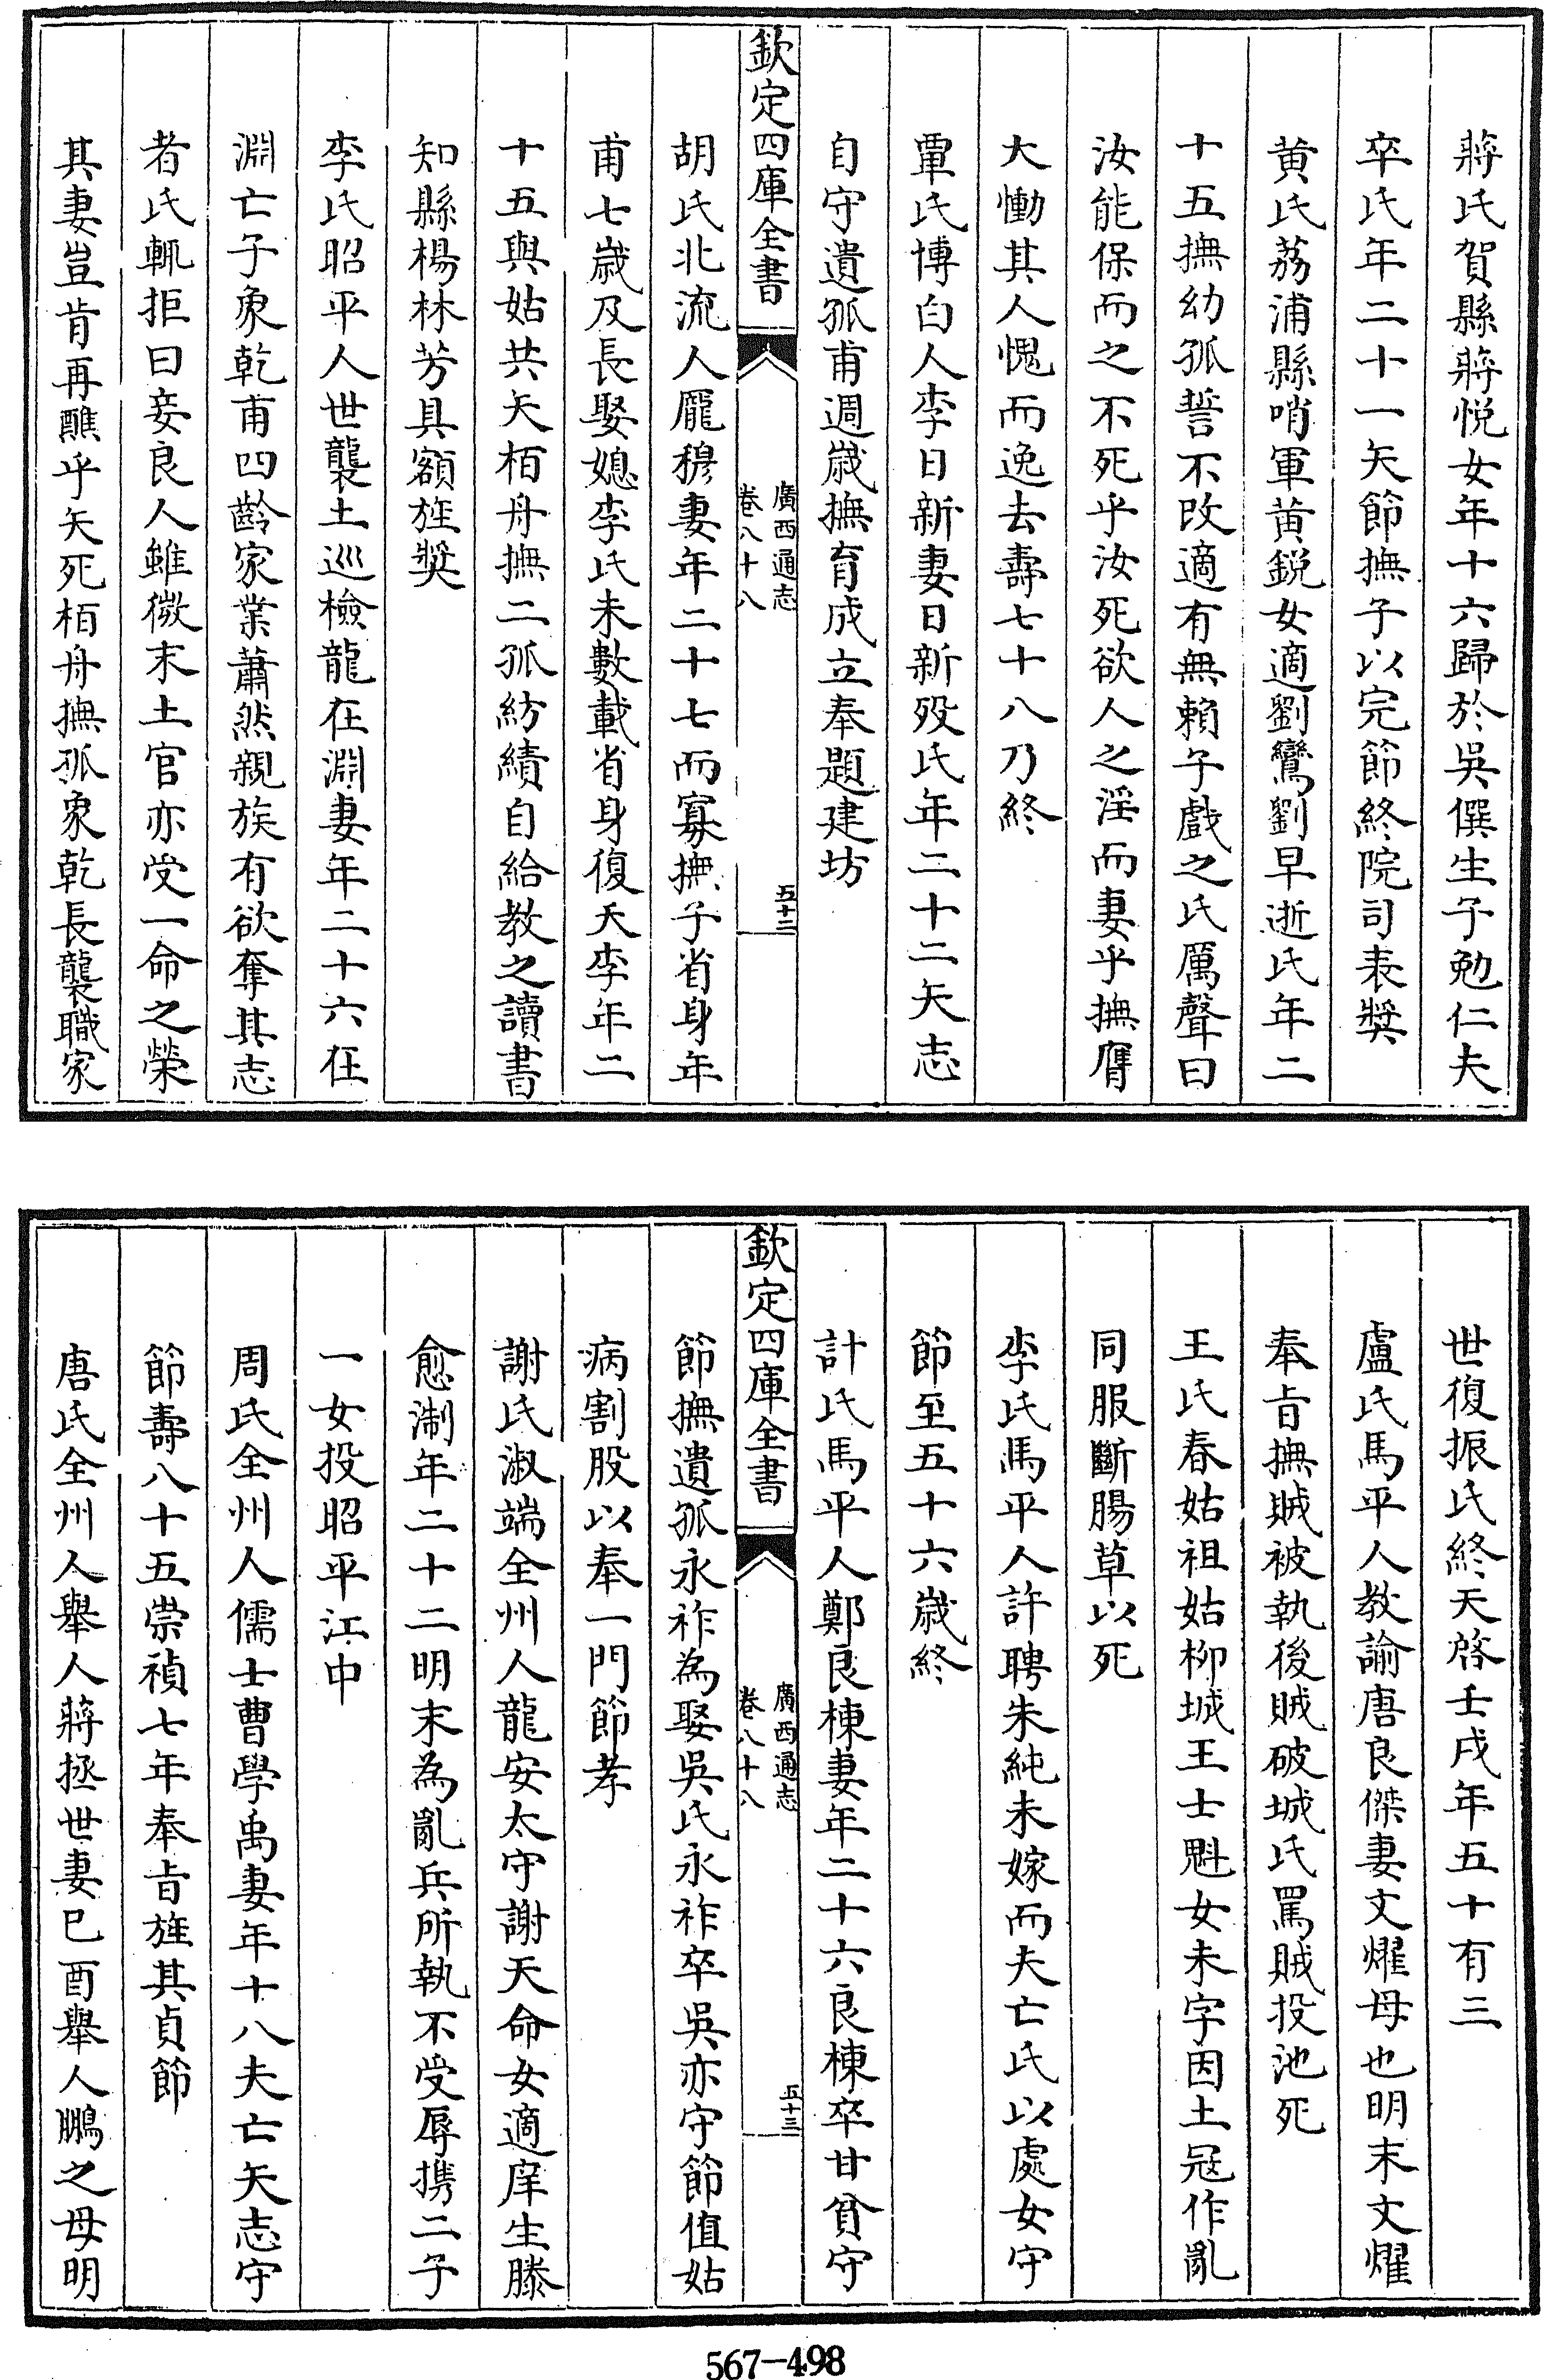 蔣氏賀縣蔣悅女年十六歸於吳僎生子勉仁夫
卒氏年二十一矢節撫子以完節終院司表奬
黃氏荔浦縣哨軍黃銳女適劉鸞劉早逝氏年二
十五撫幼孤誓不改適有無賴子戲之氏厲聲曰
汝能保而之不死乎汝死欲人之淫而妻乎撫膺
大慟其人愧而逸去壽七十八乃終
覃氏博白人李日新妻日新歿氏年二十二矢志
自守遺孤甫週歲撫育成立奉題建坊
欽定四庫全書
廣西通志
卷八十八
五十二
胡氏北流人龎穆妻年二十七而寡撫子省身年
甫七歲及長娶媳李氏未數載省身復夭李年二
十五與姑共矢栢舟撫二孤紡績自給教之讀書
知縣楊林芳具額旌奬
李氏昭平人世襲土巡檢龍在淵妻年二十六在
淵亡子象乾甫四齡家業蕭然親族有欲奪其志
者氏輒拒曰妾良人雖微末土官亦受一命之榮
其妻豈肯再醮乎矢死栢舟撫孤象乾長襲職家
世復振氏終天啓壬戌年五十有三
盧氏馬平人教諭唐良傑妻文燿母也明末文燿
奉旨撫賊被執後賊破城氏罵賊投池死
王氏春姑祖姑柳城王士魁女未字因土冦作亂
同服斷腸草以死
李氏馬平人許聘朱純未嫁而夫亡氏以處女守
節至五十六歲終
計氏馬平人鄭良棟妻年二十六良棟卒甘貧守
欽定四庫全書
廣西通志
卷八十八
五十三
節撫遺孤永祚為娶吳氏永祚卒吳亦守節值姑
病割股以奉一門節孝
謝氏淑端全州人龍安太守謝天命女適庠生滕
愈淛年二十二明末為亂兵所執不受辱攜二子
一女投昭平江中
周氏全州人儒士曹學禹妻年十八夫亡矢志守
節壽八十五崇禎七年奉旨旌其貞節
唐氏全州人舉人蔣拯世妻巳酉舉人鵬之母明
567-498